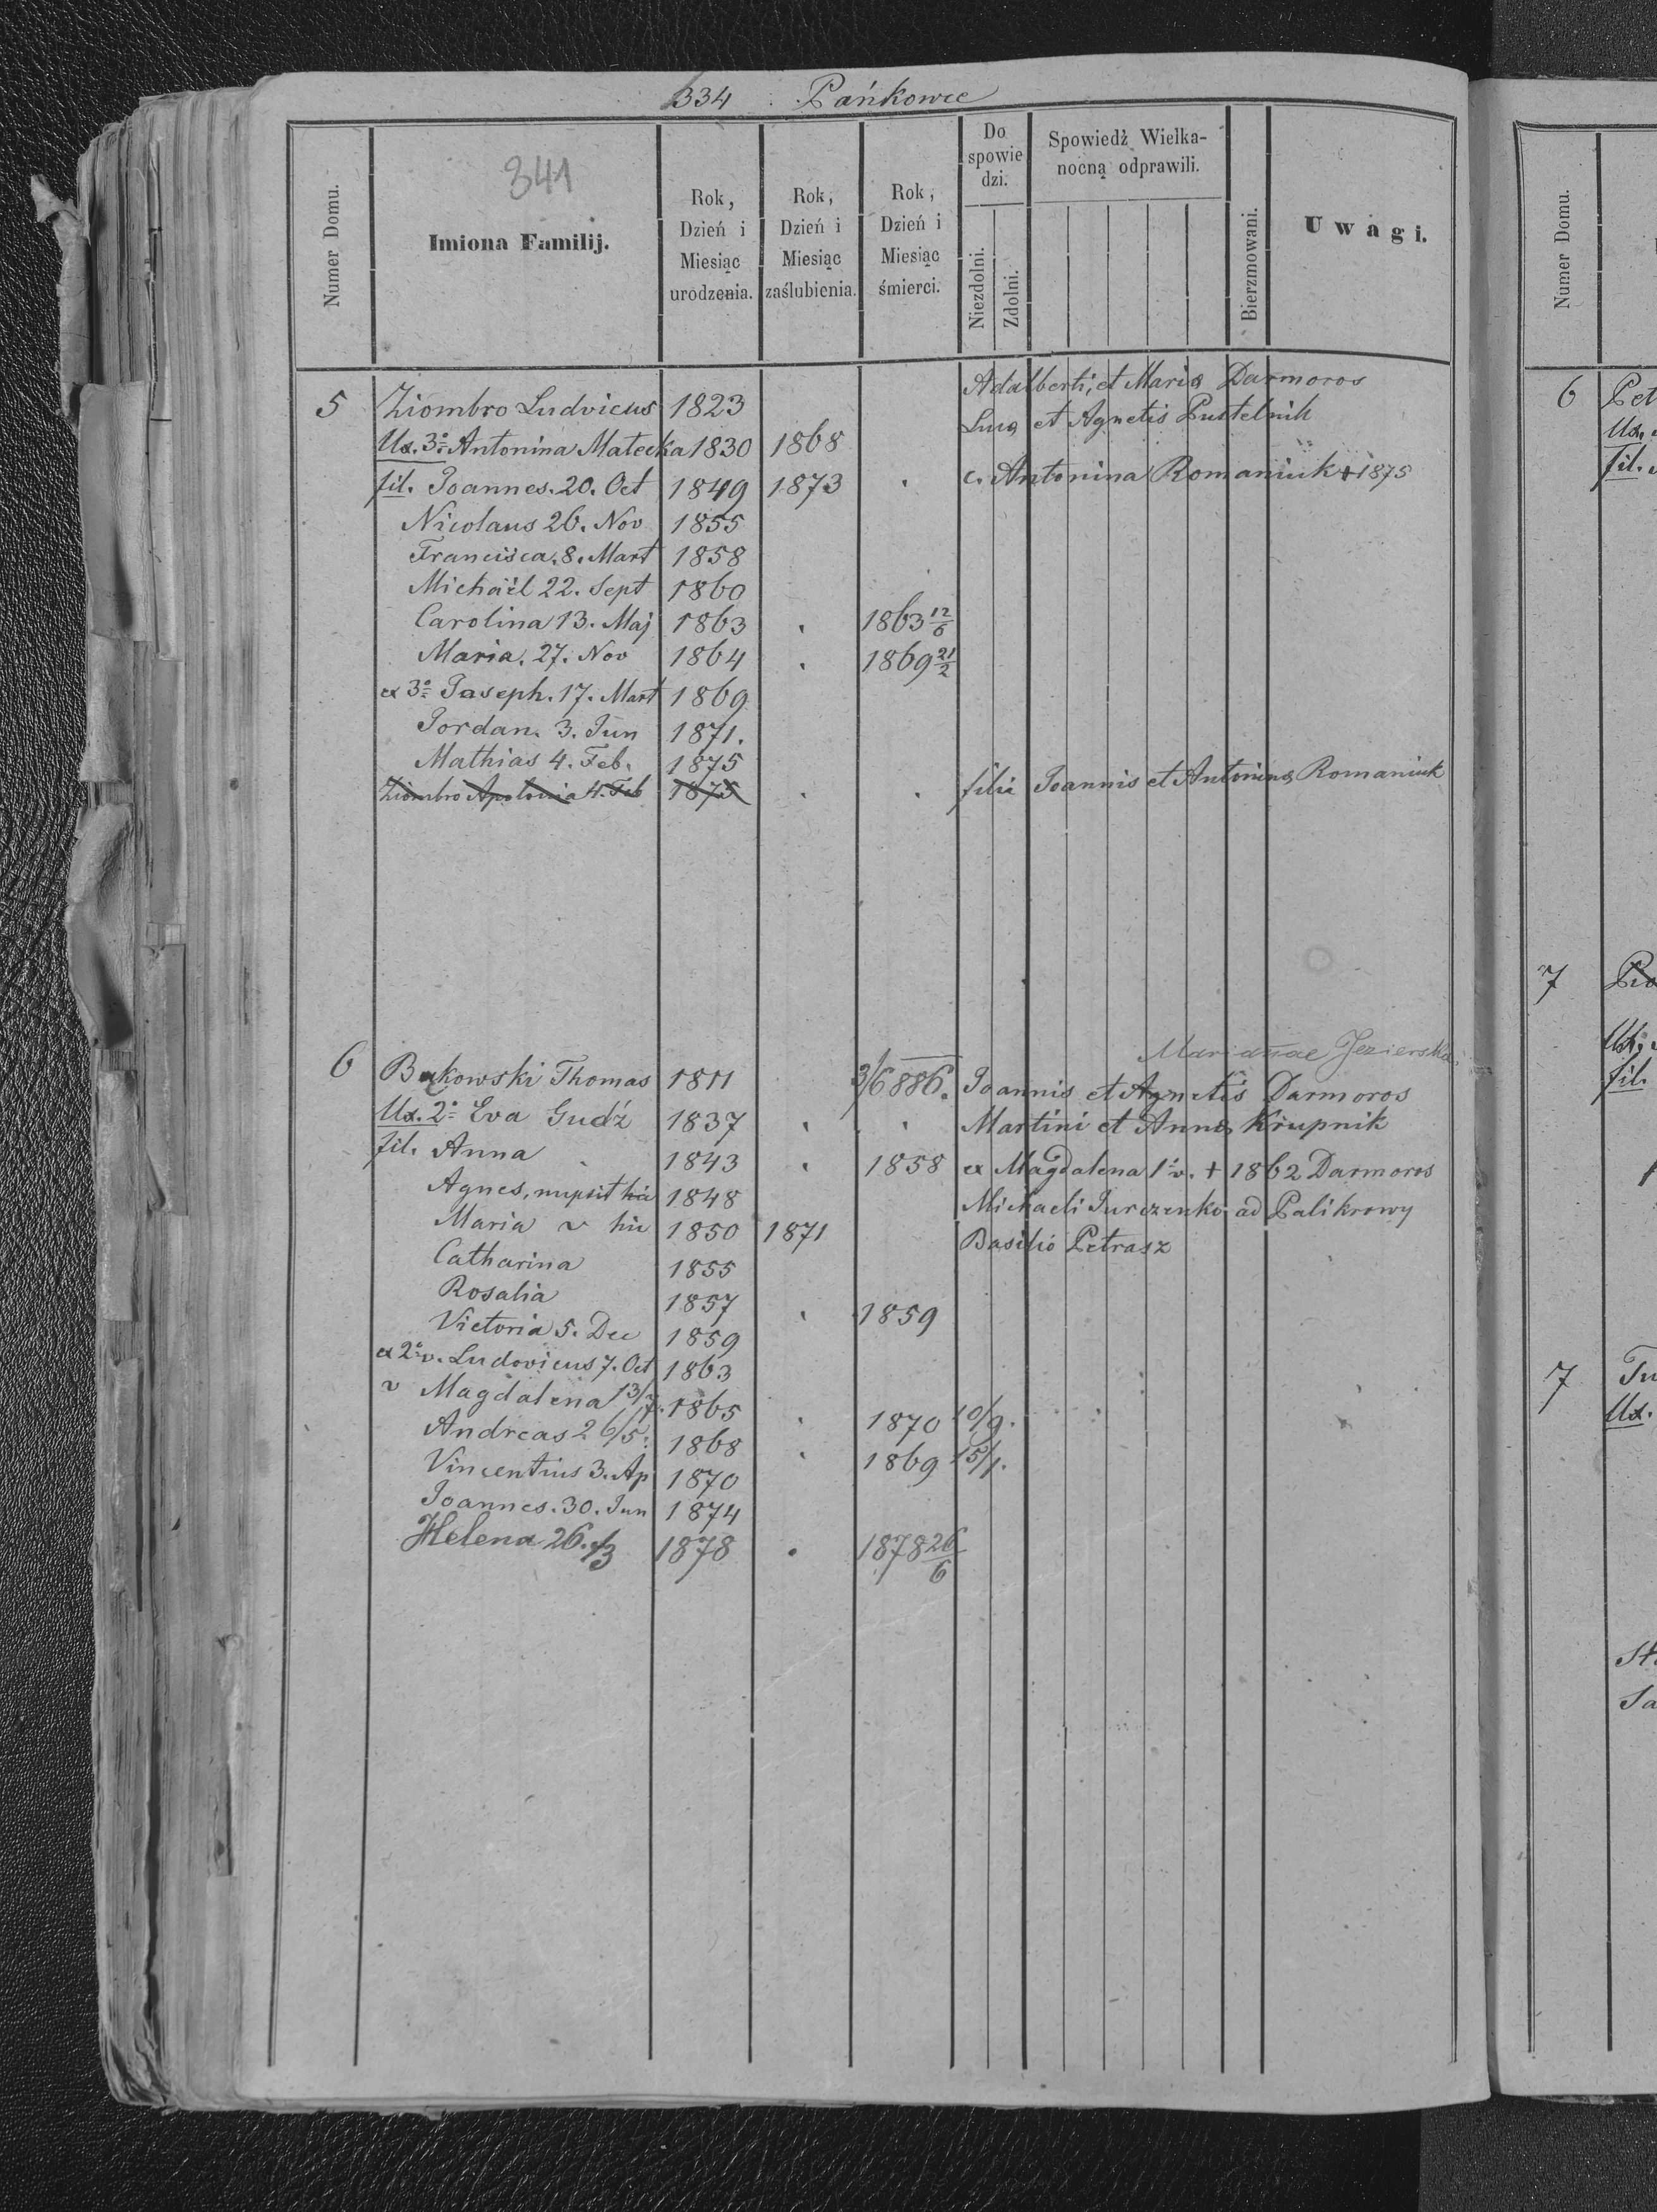 334 . Pańkowce
341
Numer Domu.
Imiona Familij.
Rok, Dzień i Miesiąc urodzenia.
Rok, Dzień i Miesiąc zaślubienia.
Rok, Dzień i Miesiąc śmierci.
Do spowie dzi.
Niezdolni.
Zdolni.
Spowiedź Wielka-
nocną odprawili.
Bierzmowani.
Uwagi.
5 Ziombro Ludvicus 1823 Adalberti, et Maria Darmoros
Ux. 3° Antonina Matecka 1830 1868 Luca et Agnetis Pustelnik
fil. Joannes. 20. Oct 1849 1873 c. Antonina Romaniuk + 1875
Nicolaus 26. Nov 1855
Francisca. 8. Mart 1858
Michaël 22. Sept 1860
Carolina 13. Maj 1863 1863 12/6
Maria. 27. Nov 1864 1869 21/2
ex 3° Joseph. 17. Mart 1869
Jordan. 3. Jun 1871.
Mathias 4. Feb. 1875
Ziombro Apolonia 4. Feb 1875 filia Joannis et Antonina Romaniuk
Marianae Jezierska
6 Bąkowski Thomas 1811 3/6 886. Joannis et Agnetis Darmoros
Ux. 2° Eva Gudź 1837 Martini et Anna Krupnik
fil. Anna 1843 1858 ex Magdalena 1° v. + 1862 Darmoros
Agnes, nupsit hic 1848 Michaeli Jurczenko ad Palikrowy
Maria hic 1850 1871 Basilio Petrasz
Catharina 1855
Rosalia 1857 1859
Victoria 5. Dec 1859
ex 2° v. Ludovicus 7. Oct 1863
Magdalena 13/7. 1865 1870 10/9.
Andreas 26/5. 1868 1869 15/1.
Vincentius 3. Ap 1870
Joannes. 30. Jun 1874
Helena 26./3 1878 1878 26/6
Numer Domu.
6 Pet
Ux.
fil.
7
Ux.
fil.
7
Ux.